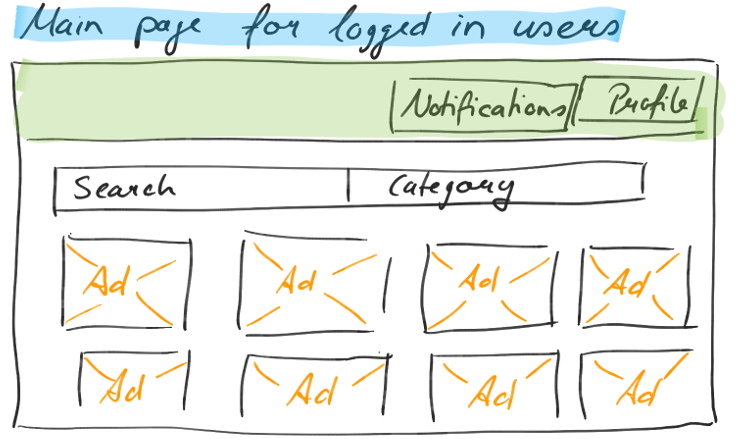 Main page for logged in users
Notifications Profile
Search Category
Ad Ad Ad Ad
Ad Ad Ad Ad